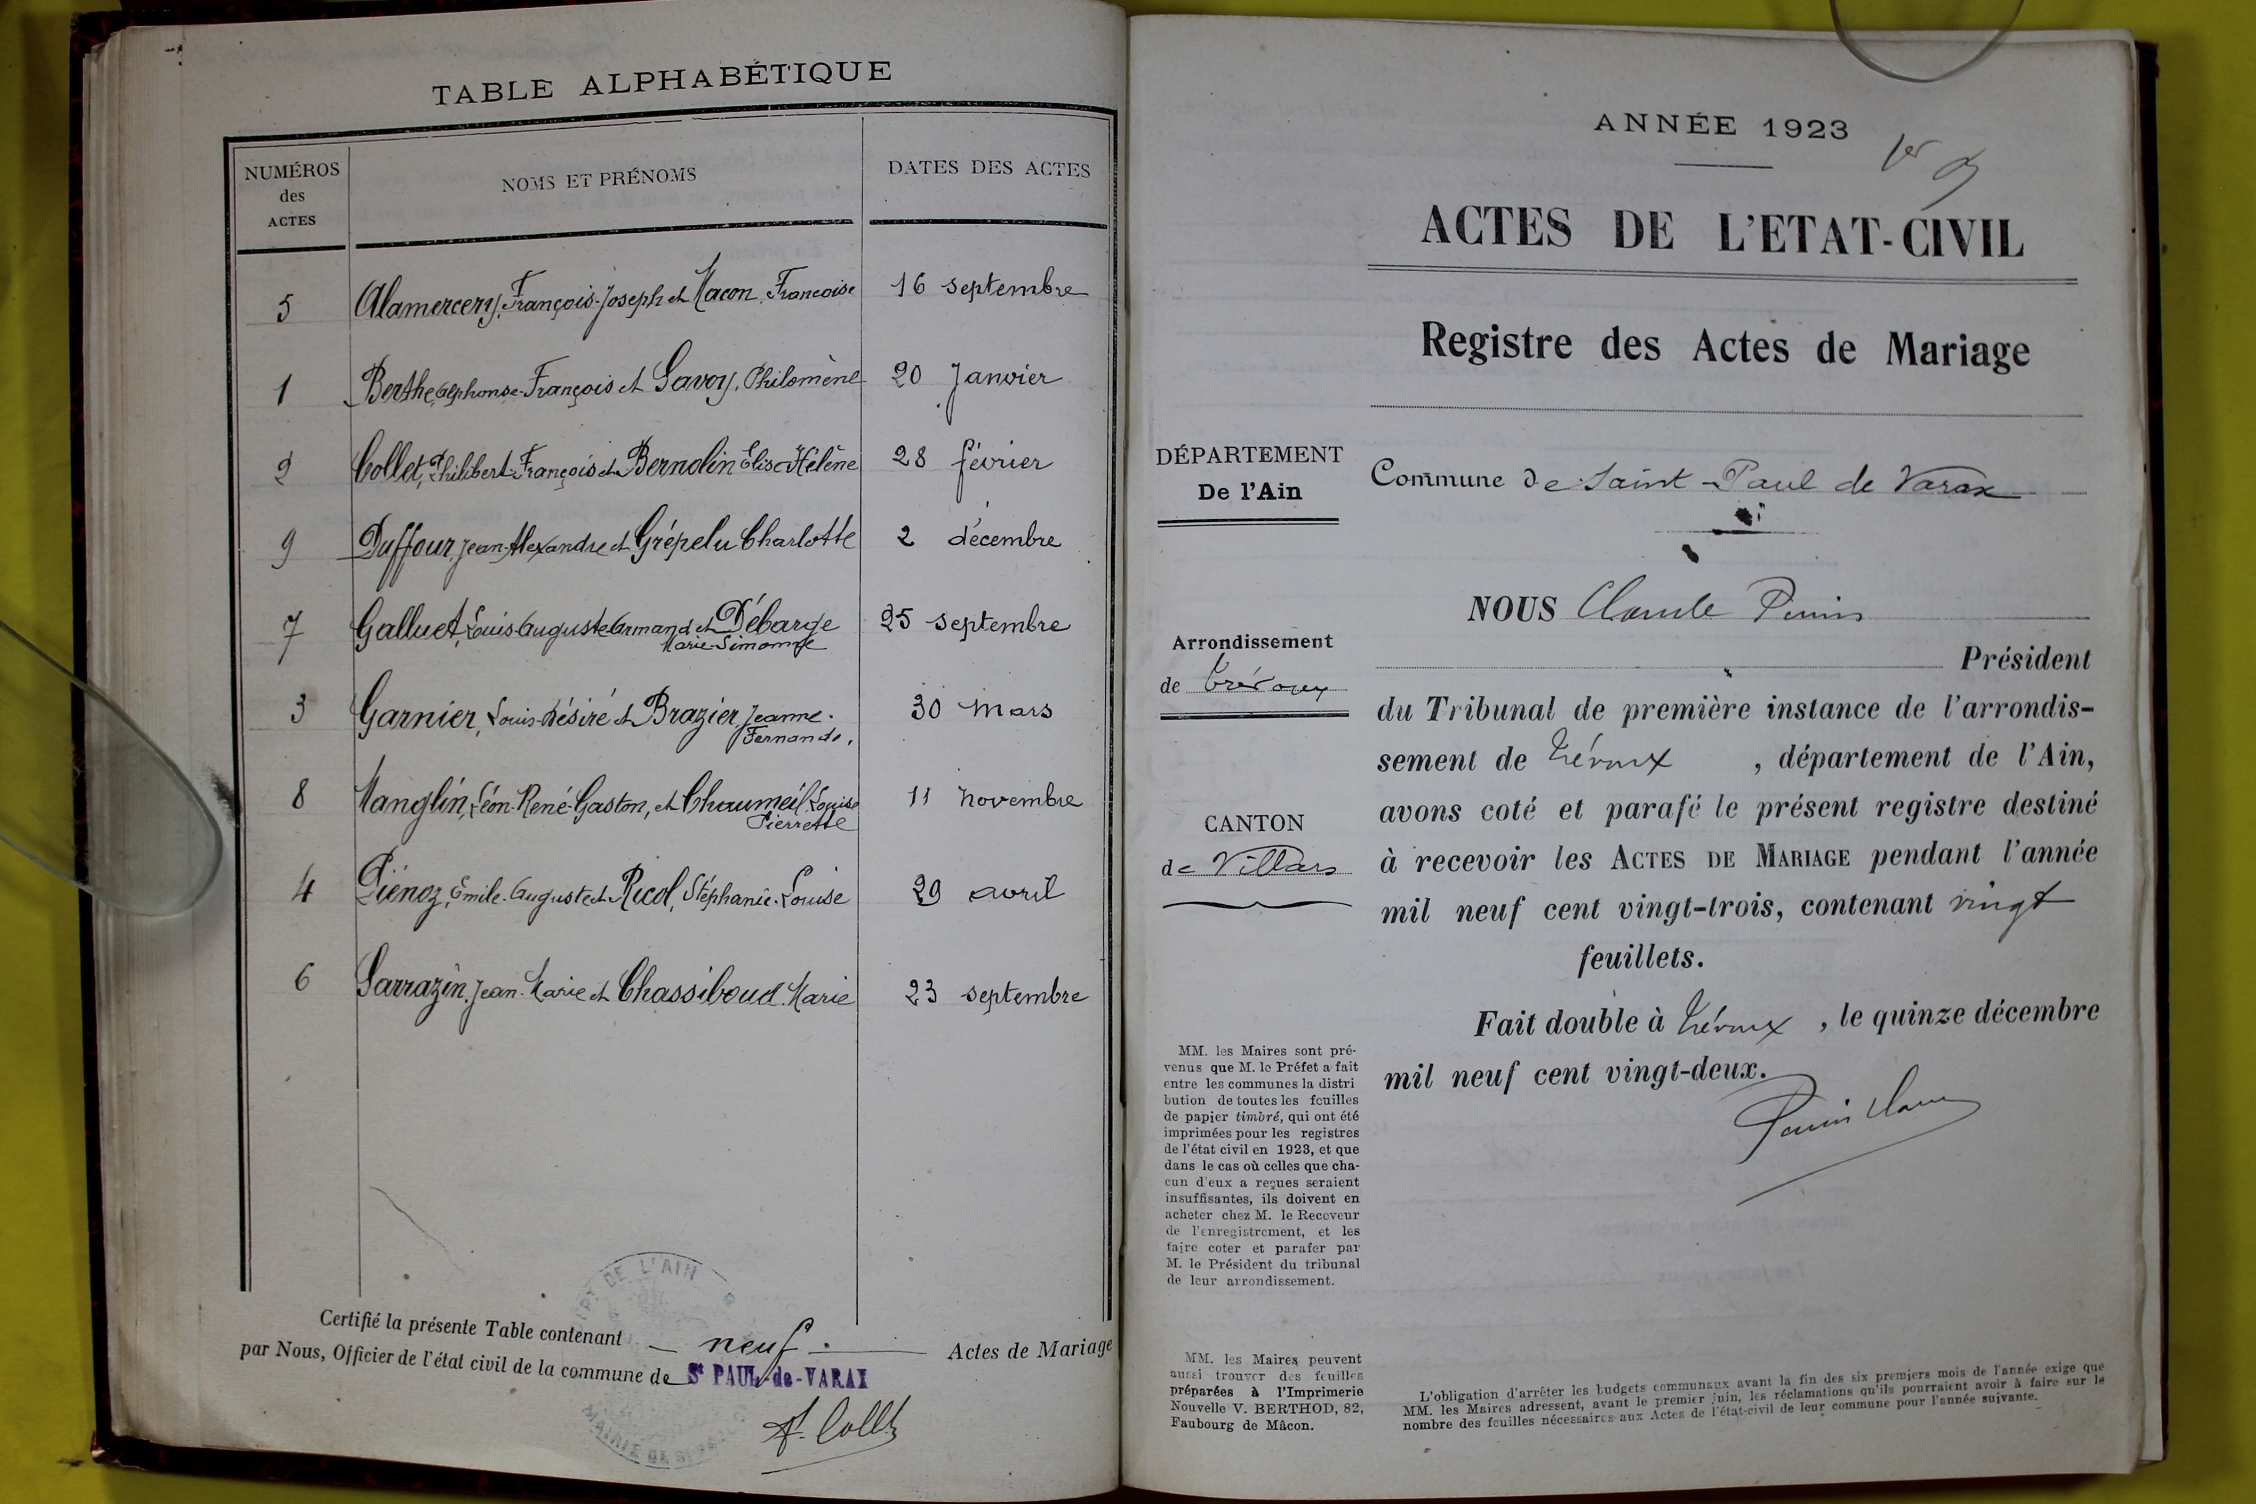 TABLE ALPHABÉTIQUE
NUMÉROS des ACTES
NOMS ET PRÉNOMS
DATES DES ACTES
5 Alamercery, François-Joseph et Macon, Francoise 16 septembre
1 Berthe, Alphonse-François et Savoy, Philomène 20 Janvier
2 Collet, Philibert-François et Bernolin Elisa Hélène 28 février
9 Duffour, Jean-Alexandre et Grépelu Charlotte 2 décembre
7 Galluet, Louis Auguste Armand et Débarge 25 septembre
Marie-Simonne
3 Garnier, Louis-Désiré et Brazier, Jeanne- 30 Mars
Fernande.
8 Manglin, Léon-René-Gaston, et Chaumeil, Louise 11 Novembre
Pierrette
4 Piénoz, Emile-Auguste et Ricol, Stéphanie-Louise 29 avril
6 Sarrazin, Jean-Marie et Chassiboud Marie 23 septembre
Certifié la présente Table contenant neuf Actes de Mariage
par Nous, Officier de l'état civil de la commune de St PAUL-de-VARAX
DE L'AIN
MAIRIE DE
A. Collet
ANNÉE 1923
1er
ACTES DE L'ETAT-CIVIL
Registre des Actes de Mariage
DÉPARTEMENT
De l'Ain
Commune de Saint-Paul de Varax
NOUS Claude
Président
Arrondissement
de Trévoux
du Tribunal de première instance de l'arrondis-
sement de Trévoux, département de l'Ain,
avons coté et parafé le présent registre destiné
à recevoir les ACTES DE MARIAGE pendant l'année
mil neuf cent vingt-trois, contenant vingt
feuillets.
CANTON
de Villars
Fait double à Trévoux, le quinze décembre
mil neuf cent vingt-deux.
MM. les Maires sont pré-
venus que M. le Préfet a fait
entre les communes la distri
bution de toutes les feuilles
de papier timbré, qui ont été
imprimées pour les registres
de l'état civil en 1923, et que
dans le cas où celles que cha-
cun d'eux a reçues seraient
insuffisantes, ils doivent en
acheter chez M. le Receveur
de l'enregistrement, et les
faire coter et parafer par
M. le Président du tribunal
de leur arrondissement.
MM. les Maires peuvent
aussi trouver des feuilles
préparées à l'Imprimerie
Nouvelle V. BERTHOD, 82,
Faubourg de Mâcon.
L'obligation d'arrêter les budgets communaux avant la fin des six premiers mois de l'année exige que
MM. les Maires adressent, avant le premier juin, les réclamations qu'ils pourraient avoir à faire sur le
nombre des feuilles nécessaires aux Actes de l'état-civil de leur commune pour l'année suivante.